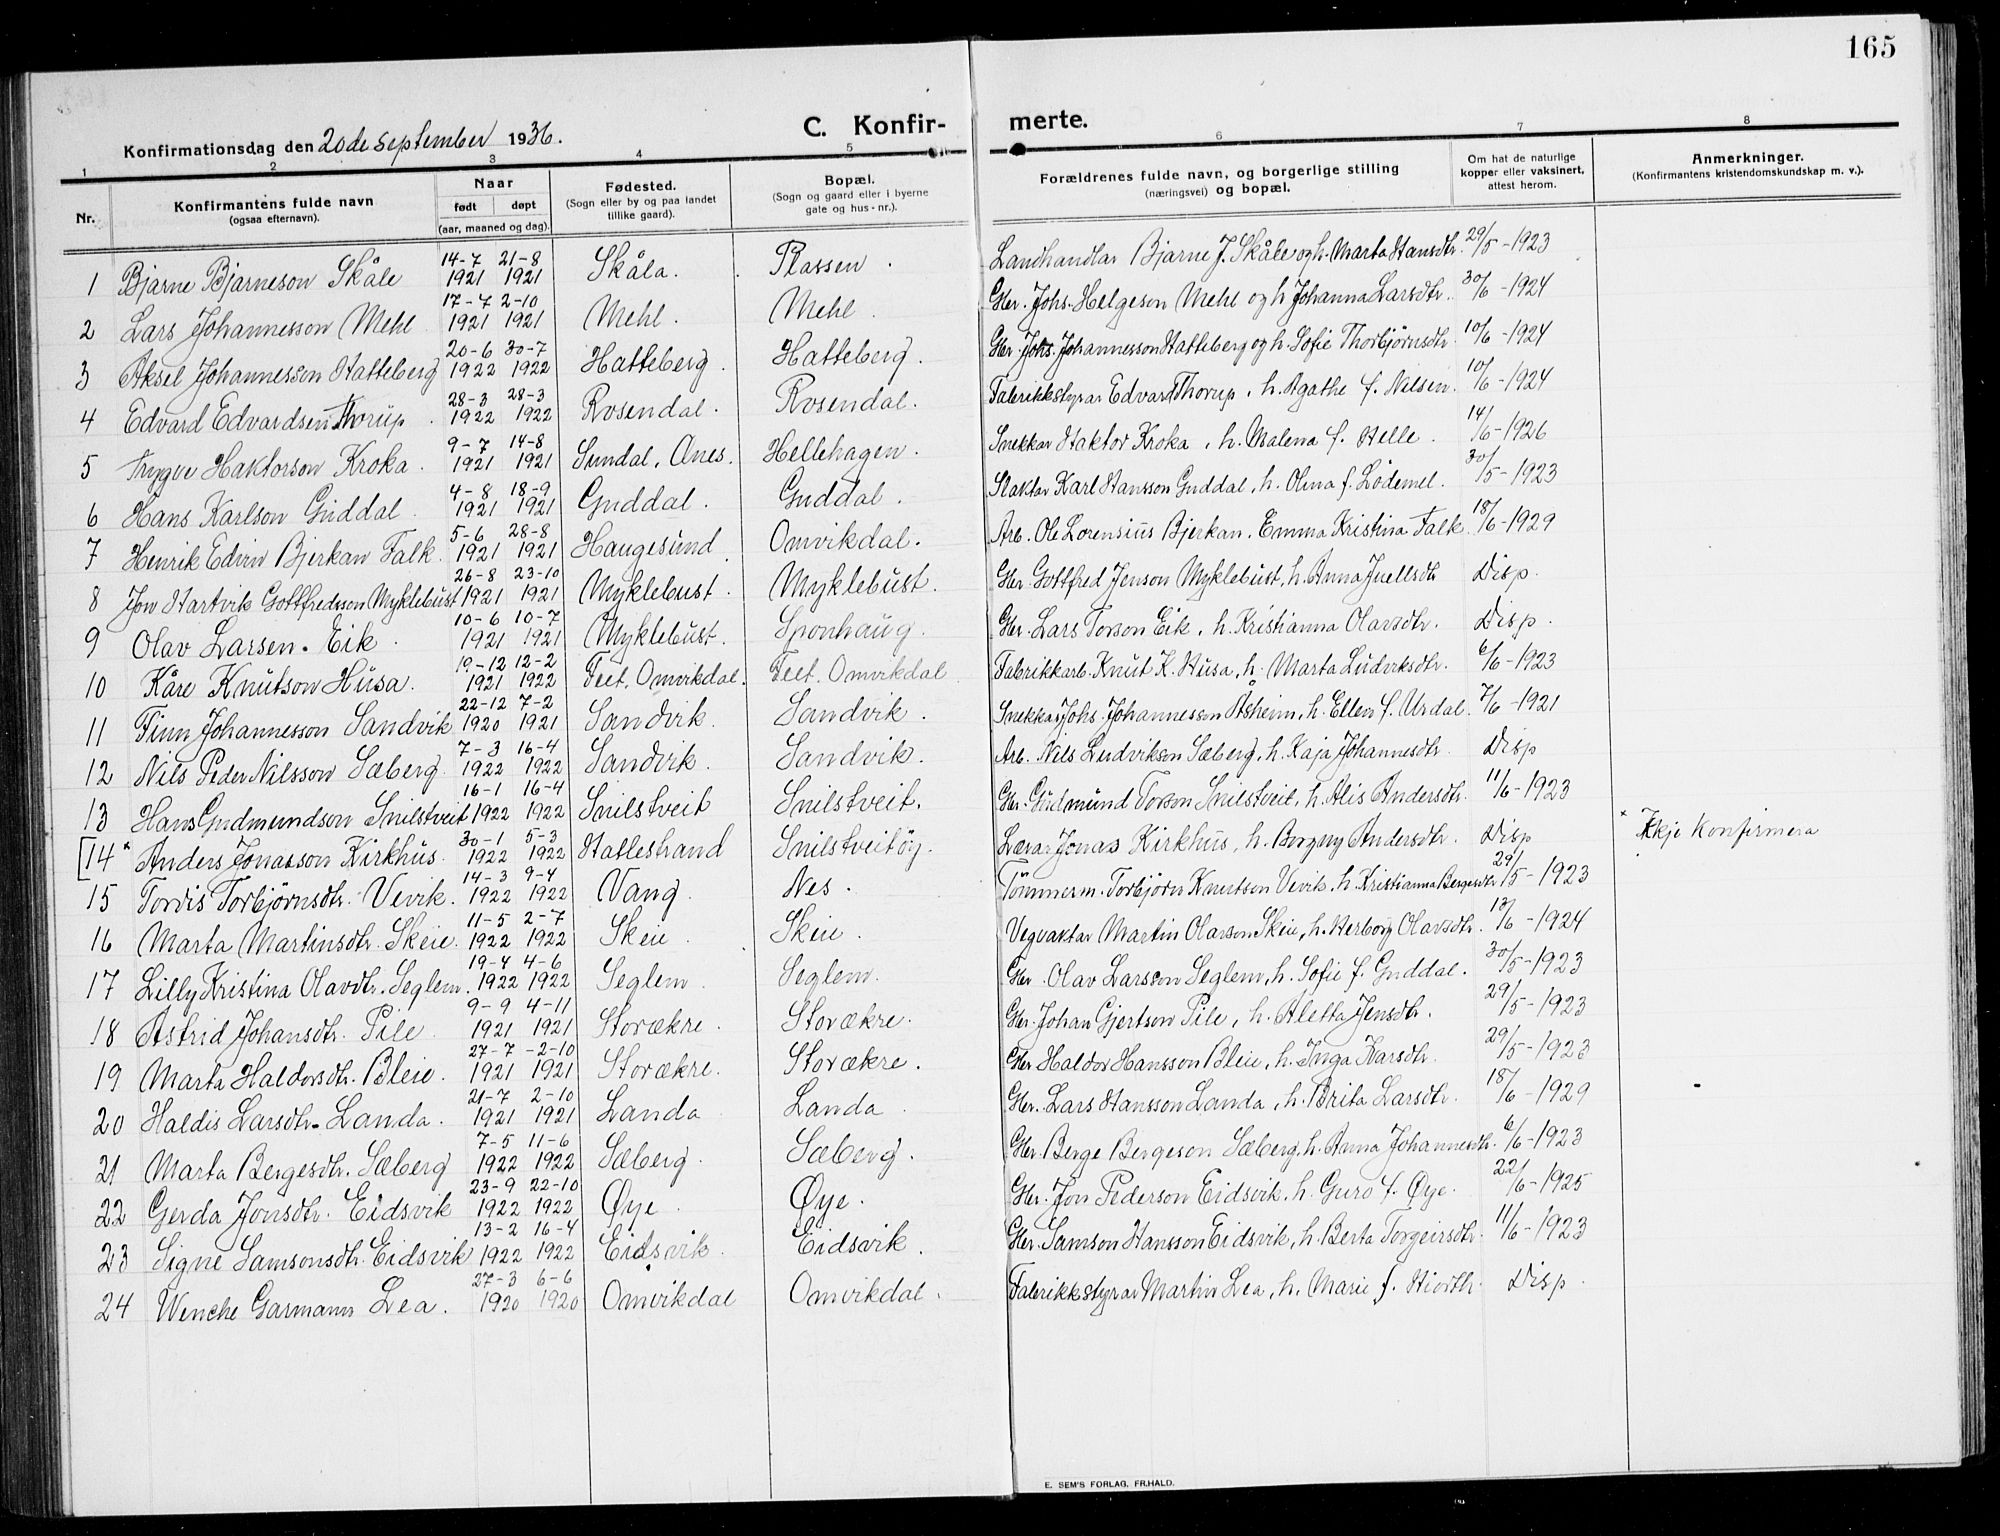 165
C. Konfirmerte.
Konfirmationsdag den 20de september 1936.
1 2 3 4 5 6 7 8
Nr. Konfirmantens fulde navn (ogsaa efternavn). Naar født døpt (aar, maaned og dag). Fødested. (Sogn eller by og paa landet tillike gaard). Bopæl. (Sogn og gaard eller i byerne gate og hus-nr.). Forældrenes fulde navn, og borgerlige stilling (næringsvei) og bopæl. Om hat de naturlige kopper eller vaksinert, attest herom. Anmerkninger. (Konfirmantens kristendomskundskap m. v.).
1 Bjarne Bjarneson Skåle 14-7 1921 21-8 1921 Skåla. Plassen. Landhandlar Bjarne J. Skåle og h. Marta Hansdtr. 29/5-1923
2 Lars Johannesson Mehl 17-7 1921 2-10 1921 Mehl. Mehl. Gbr. Johs. Helgeson Mehl og h. Johanna Larsdtr. 30/6-1924
3 Aksel Johannesson Hatteberg 20-6 1922 30-7 1922 Hatteberg. Hatteberg. Gbr. Johs. Johannesson Hatteberg og h. Sofie Thorbjørnsdtr. 10/6-1924
4 Edvard Edvardsen Thorup. 28-3 1922 28-3 1922 Rosendal. Rosendal. Fabrikkstyrar Edvard Thorup, h. Agathe f. Nilsen. 10/6-1924
5 Trygve Haktorson Kroka. 9-7 1921 14-8 1921 Sundal, Ænes. Hellehagen. Snekkar Haktor Kroka, h. Malena f. Helle. 14/6-1926
6 Hans Karlson Guddal. 4-8 1921 18-9 1921 Guddal. Guddal. Slaktar Karl Hansson Guddal, h. Olina f. Lødemel. 30/5-1923
7 Henrik Edvin Bjerkan Falk. 5-6 1921 28-8 1921 Haugesund Omvikdal. Arb. Ole Lorensius Bjerkan. Emma Kristina Falk. 18/6-1929
8 Jon Hartvik Gottfredsson Myklebust 26-8 1921 23-10 1921 Myklebust. Myklebust. Gbr. Gottfred Jenson Myklebust, h. Anna Juellsdtr Disp.
9 Olav Larsen Eik. 10-6 1921 10-7 1921 Myklebust. Sponhaug. Gbr. Lars Torson Eik, h. Kristianna Olavsdtr. Disp.
10 Kåre Knutson Husa. 19-12 1921 12-2 1922 Teet. Omvikdal. Teet. Omvikdal Fabrikkarb. Knut K. Husa, h. Marta Ludviksdtr. 6/6-1923
11 Finn Johannesson Sandvik 22-12 1920 7-2 1921 Sandvik. Sandvik. Snekkar Johs. Johannesson Åsheim, h. Ellen f. Urdal. 7/6-1921
12 Nils Peder Nilsson Sæberg. 7-3 1922 16-4 1922 Sandvik. Sandvik. Arb. Nils Ludvikson Sæberg, h. Kaja Johannesdtr. Disp
13 Hans Gudmundson Snilstveit 16-1 1922 16-4 1922 Snilstveit Snilstveit. Gbr. Gudmund Torson Snilstveit, h. Alis Andersdtr. 11/6-1923
[14* Anders Jonasson Kirkhus. 30-1 1922 5-3 1922 Hattestrand Snilstveitøy. Lærar Jonas Kirkhus, h. Borgny Andersdtr. Disp * Ikkje konfirmera
15 Tordis Torbjørnsdtr. Vevik. 14-3 1922 9-4 1922 Vang. Nes. Tømmerm. Torbjørn Knutson Vevik, h. Kristianna Bergesdtr 29/5-1923
16 Marta Martinsdtr. Skeie. 11-5 1922 2-7 1922 Skeie. Skeie. Vegvaktar Martin Olarson Skeie, h. Herborg Olavsdtr. 13/6-1924
17 Lilly Kristina Olavdtr. Seglem. 19-4 1922 4-6 1922 Seglem. Seglem. Gbr. Olav Larsson Seglem, h. Sofie f. Guddal. 30/5-1923
18 Astrid Johansdtr. Pile. 9-9 1921 4-11 1921 Storækre. Storækre. Gbr. Johan Gjertson Pile, h. Aletta Jensdtr. 29/5-1923
19 Marta Haldorsdtr. Bleie. 27-7 1921 2-10 1921 Storækre. Storækre. Gbr. Haldor Hansson Bleie, h. Inga Karsdtr. 29/5-1923
20 Haldis Larsdtr. Landa. 21-7 1921 2-10 1921 Landa Landa. Gbr. Lars Hansson Landa, h. Brita Larsdtr. 18/6-1929
21 Marta Bergesdtr. Sæberg 7-5 1922 11-6 1922 Sæberg. Sæberg. Gbr. Berge Bergeson Sæberg, h. Anna Johannesdtr. 6/6-1923
22 Gerda Jonsdtr. Eidsvik 23-9 1922 22-10 1922 Øye. Øye. Gbr. Jon Pederson Eidsvik, h. Guro f. Øye. 22/6-1925
23 Signe Samsonsdtr. Eidsvik 13-2 1922 16-4 1922 Eidsvik. Eidsvik. Gbr. Samson Hansson Eidsvik, h. Berta Torgeirsdtr. 11/6-1923
24 Wenche Garmann Lea. 27-3 1920 6-6 1920 Omvikdal Omvikdal. Fabrikkstyrar Martin Lea, h. Marie f. Hiorth. Disp.
E. SEM'S FORLAG, FR.HALD.